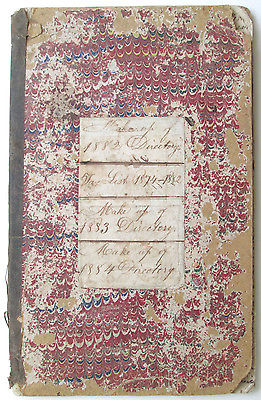 Make up of
1882 Directory.
Tax List 1874-1882
Make up of
1883 Directory.
Make up of
1884 Directory